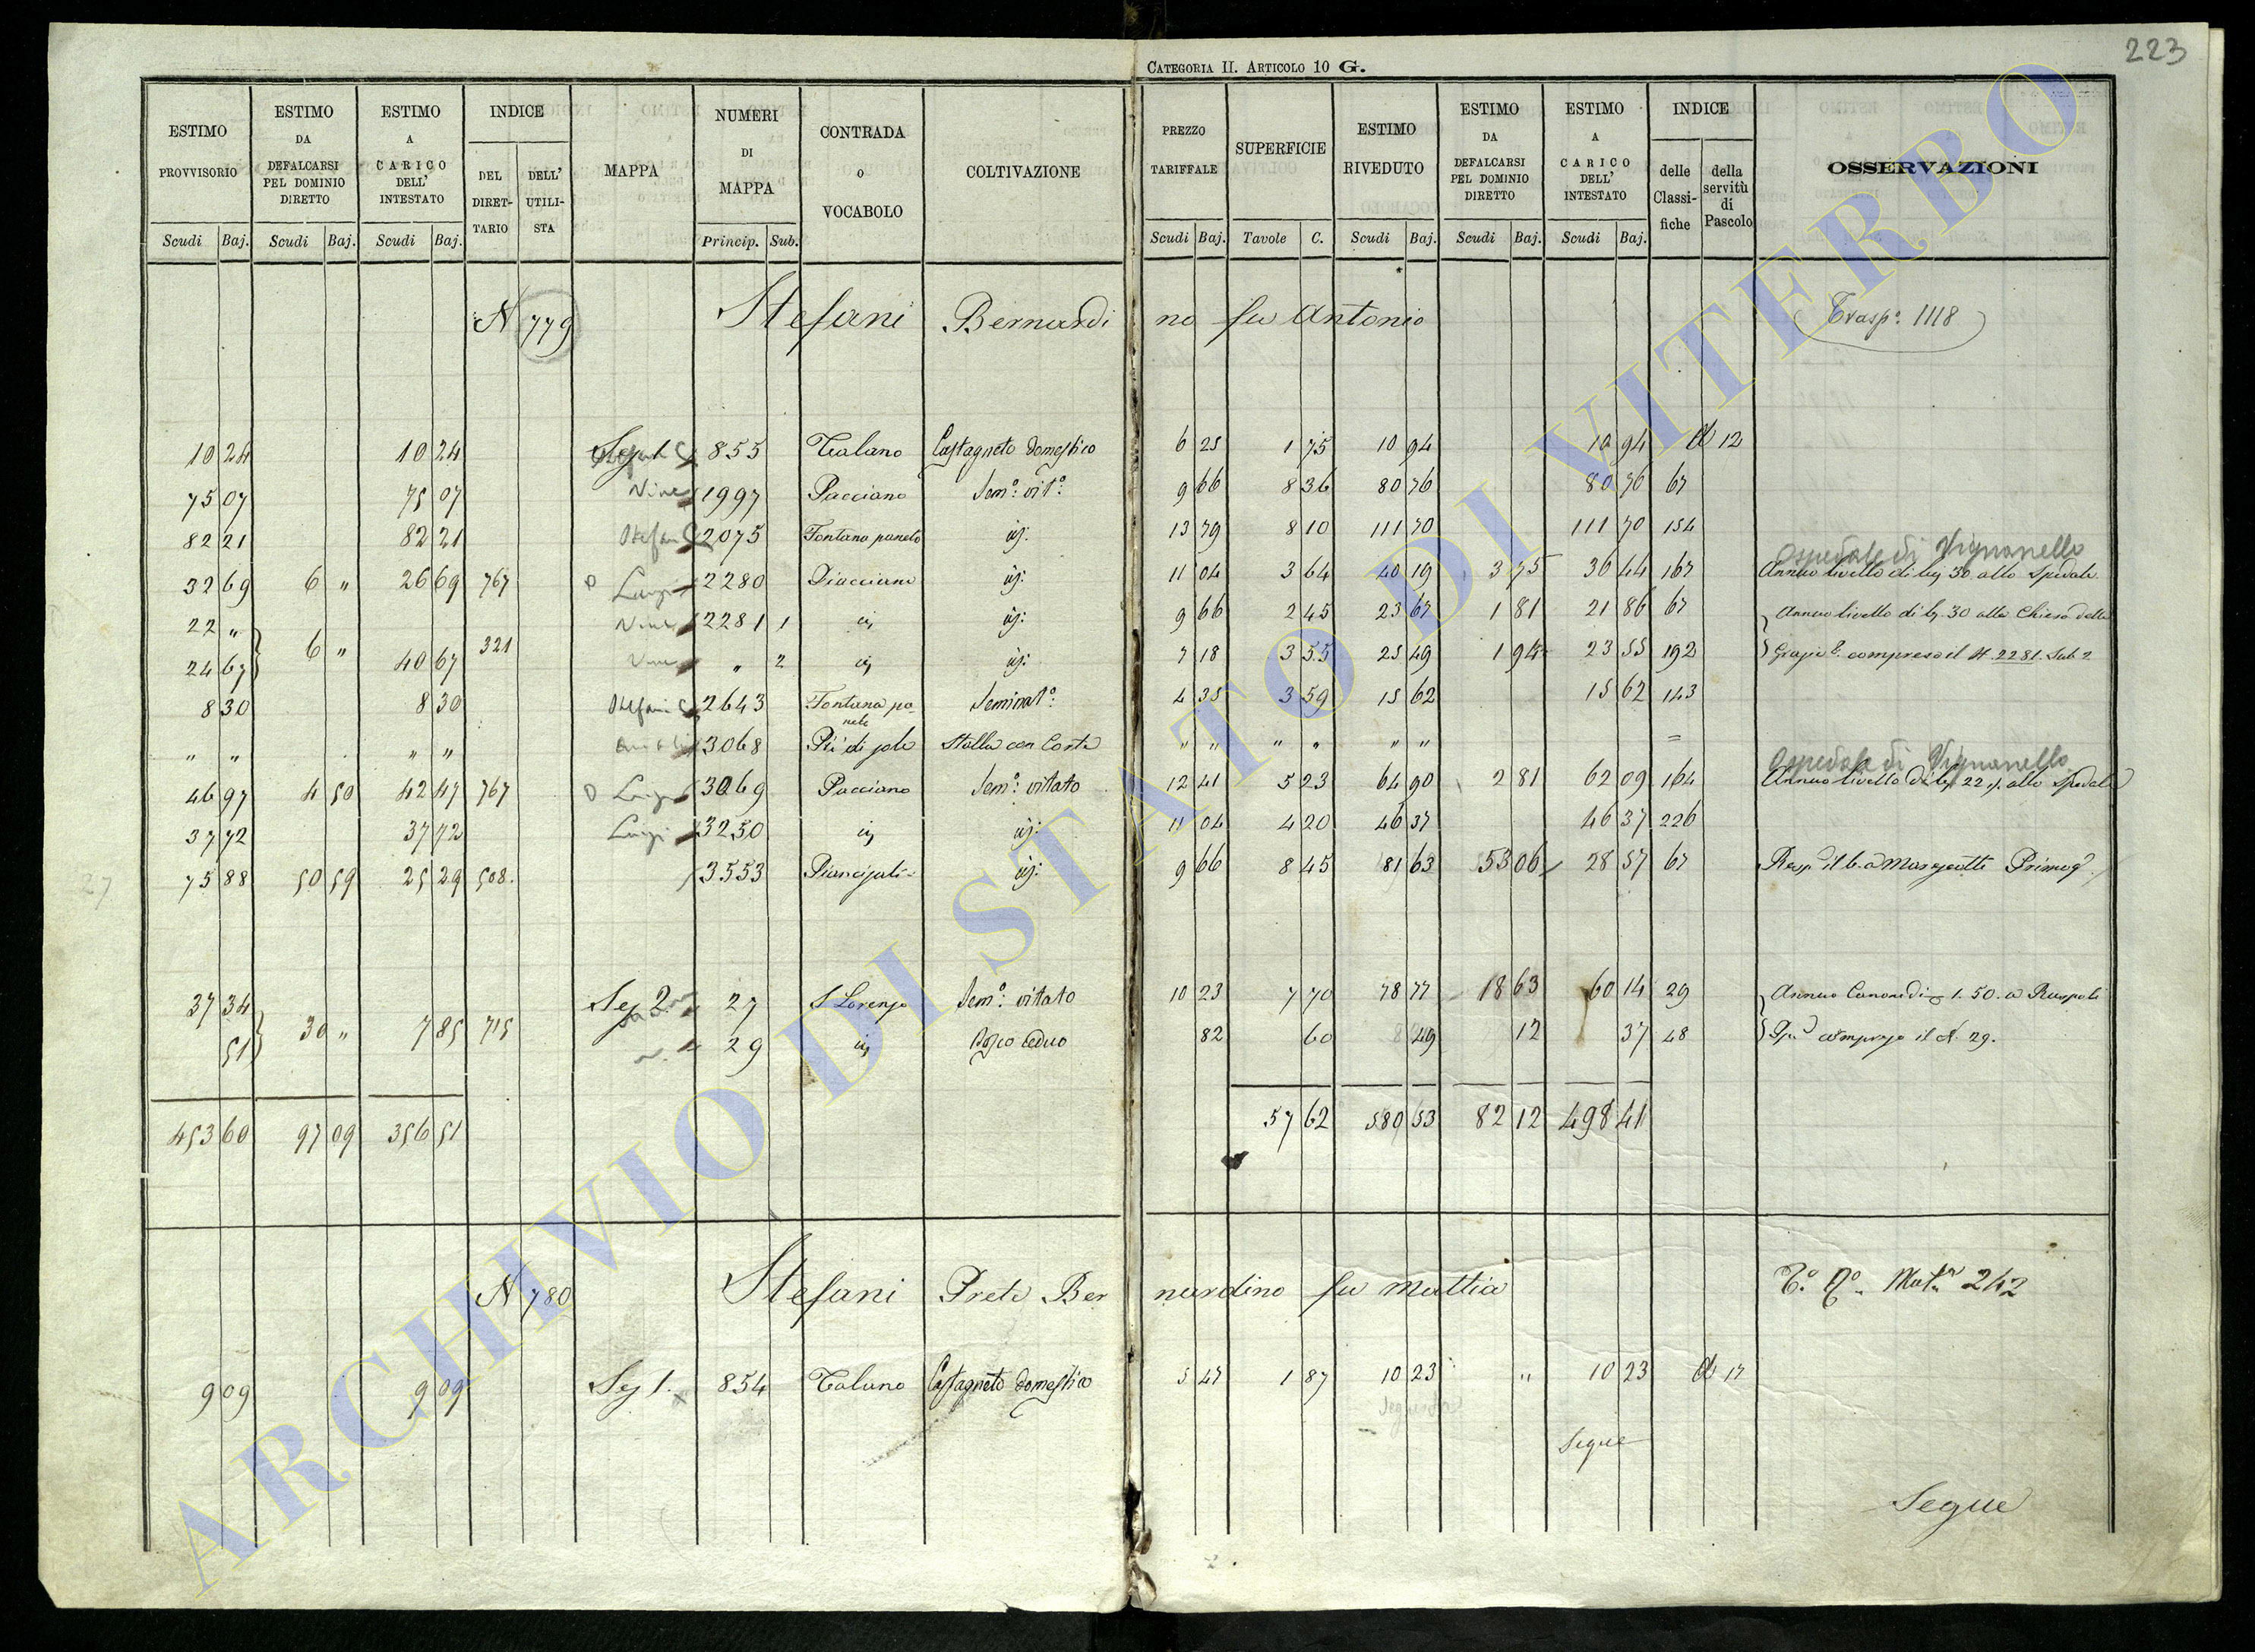 223
CATEGORIA II. ARTICOLO 10 G.
ESTIMO PROVVISORIO Scudi Baj.
ESTIMO DA DEFALCARSI PEL DOMINIO DIRETTO Scudi Baj.
ESTIMO A CARICO DELL' INTESTATO Scudi Baj.
INDICE DEL DIRET-TARIO DELL' UTILI-STA
MAPPA
NUMERI DI MAPPA Princip. Sub.
CONTRADA O VOCABOLO
COLTIVAZIONE
PREZZO TARIFFALE Scudi Baj.
SUPERFICIE Tavole C.
ESTIMO RIVEDUTO Scudi Baj.
ESTIMO DA DEFALCARSI PEL DOMINIO DIRETTO Scudi Baj.
ESTIMO A CARICO DELL' INTESTATO Scudi Baj.
INDICE delle Classi-fiche della servitù di Pascolo
OSSERVAZIONI
N 779 Stefani Bernardino fu Antonio Trasp: 1118
10 24 10 24 Sez 1 855 Talano Castagneto domestico 6 25 1 75 10 94 10 94 d 12
75 07 75 07 1997 Pacciano Sem: vit: 9 66 8 36 80 76 80 76 67
82 21 82 21 Stefani 2075 Fontana paneto 13 79 8 10 111 70 111 70 154
Ospedale di Vignanello
32 69 6 " 26 69 767 Luigi 2280 11 04 3 64 40 19 3 75 36 44 167 Annuo livello di bj 30 allo Spedale
22 " 2281 1 9 66 2 45 23 67 1 81 21 86 67 Annuo livello di bj. 30 alla Chiesa della
24 67 6 " 40 67 321 " 2 7 18 3 55 25 49 1 94 23 55 192 compreso il N. 2281. Sub 2
8 30 8 30 Stefani 2643 Fontana paneto Seminat: 4 35 3 59 15 62 15 62 143
" " " " 3068 Piè di sole Stalla con Corte " " " " " " =
Ospedale di Vignanello
46 97 4 50 42 47 767 Luigi 3069 Pacciano Sem: vitato 12 41 5 23 64 90 2 81 62 09 164 Annuo livello di bj 22 allo Spedale
37 72 37 72 Luigi 3250 11 04 4 20 46 37 46 37 226
75 88 50 59 25 29 508. 3553 9 66 8 45 81 63 53 06 28 57 67
37 34 Sez 2 27 S Lorenzo Sem: vitato 10 23 7 70 78 77 18 63 60 14 29 Annuo Canone di 1. 50. a Ruspoli
51 30 " 7 85 715 29 Bosco ceduo 82 60 49 12 37 48 compreso il N. 29.
453 60 97 09 356 51 57 62 580 53 82 12 498 41
N 780 Stefani Prete Bernardino fu Mattia 242
9 09 9 09 Sez 1. 854 Talano Castagneto domestico 5 47 1 87 10 23 " 10 23 d 17
Segue
Segue
ARCHIVIO DI STATO DI VITERBO